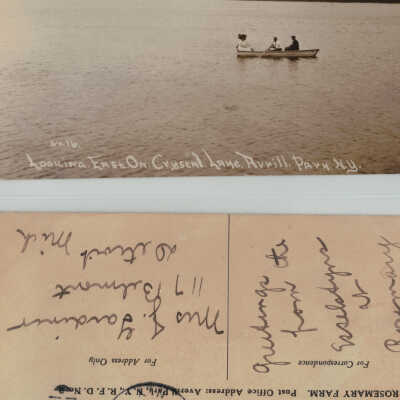 Looking East On Crystal Lake, Avrill Park N.Y.
ROSEMARY FARM. Post Office Address: Averill Park, N. Y., R. F. D. No.
For Correspondence
For Address Only
Greetings
from the
Esselstyns
at
Rosemary
Mrs J. Gardiner
117 Belmont
Detroit Mich